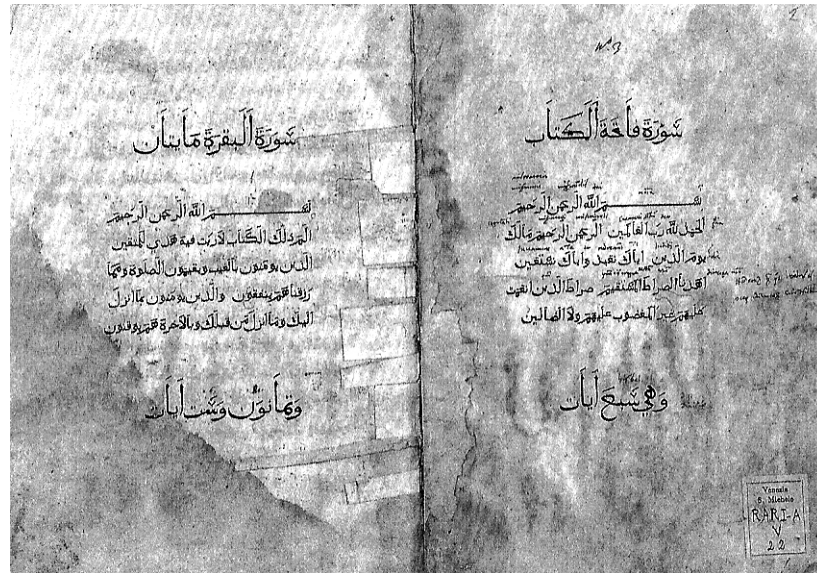 2
Nº 3
سُورَة فَاتحَة اَلكتَاب
بسـم اَللّه اَلرحمن اَلرحيم
اَلحمد للّه رَب اَلعالمين اَلرحمن اَلرحيم مالك
يوم اَلدين اياك نعبد واياك نستعين
اهدنا اَلصراط اَلمستقيم صراط اَلدين انعمت
عليهم غير اَلمغضوب عليهم ولا اَلضالين
وَهي سَبعَ اَيَات
Venezia
S. Michele
RARI-A
V
22
سُورَة اَلبقرَة مَايتَان
بسـم اَللّه اَلرحمن اَلرحيم
الم دلك اَلكتاب لاريب فيه هدي للمتقين
اَلدين يومنون بالغيب ويقيمون اَلصلوة ومما
رزقناهم ينفقون واَلدين يومنون بما انزل
اليك وما انزل من قبلك وبالاخرة هم يوقنون
وَتمَانوُن وَست اَيَات